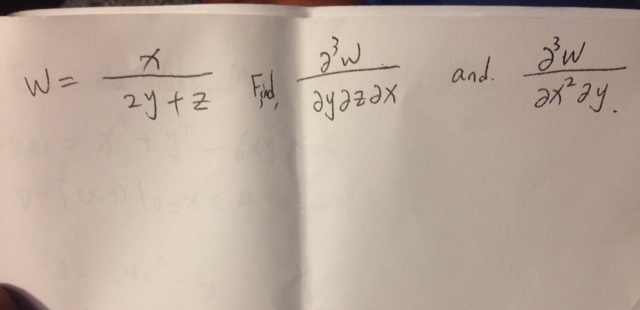 W = x / (2y + z) Find, ∂³w / ∂y∂z∂x and. ∂³w / ∂x²∂y.